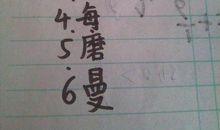 4.每
5.磨
6曼